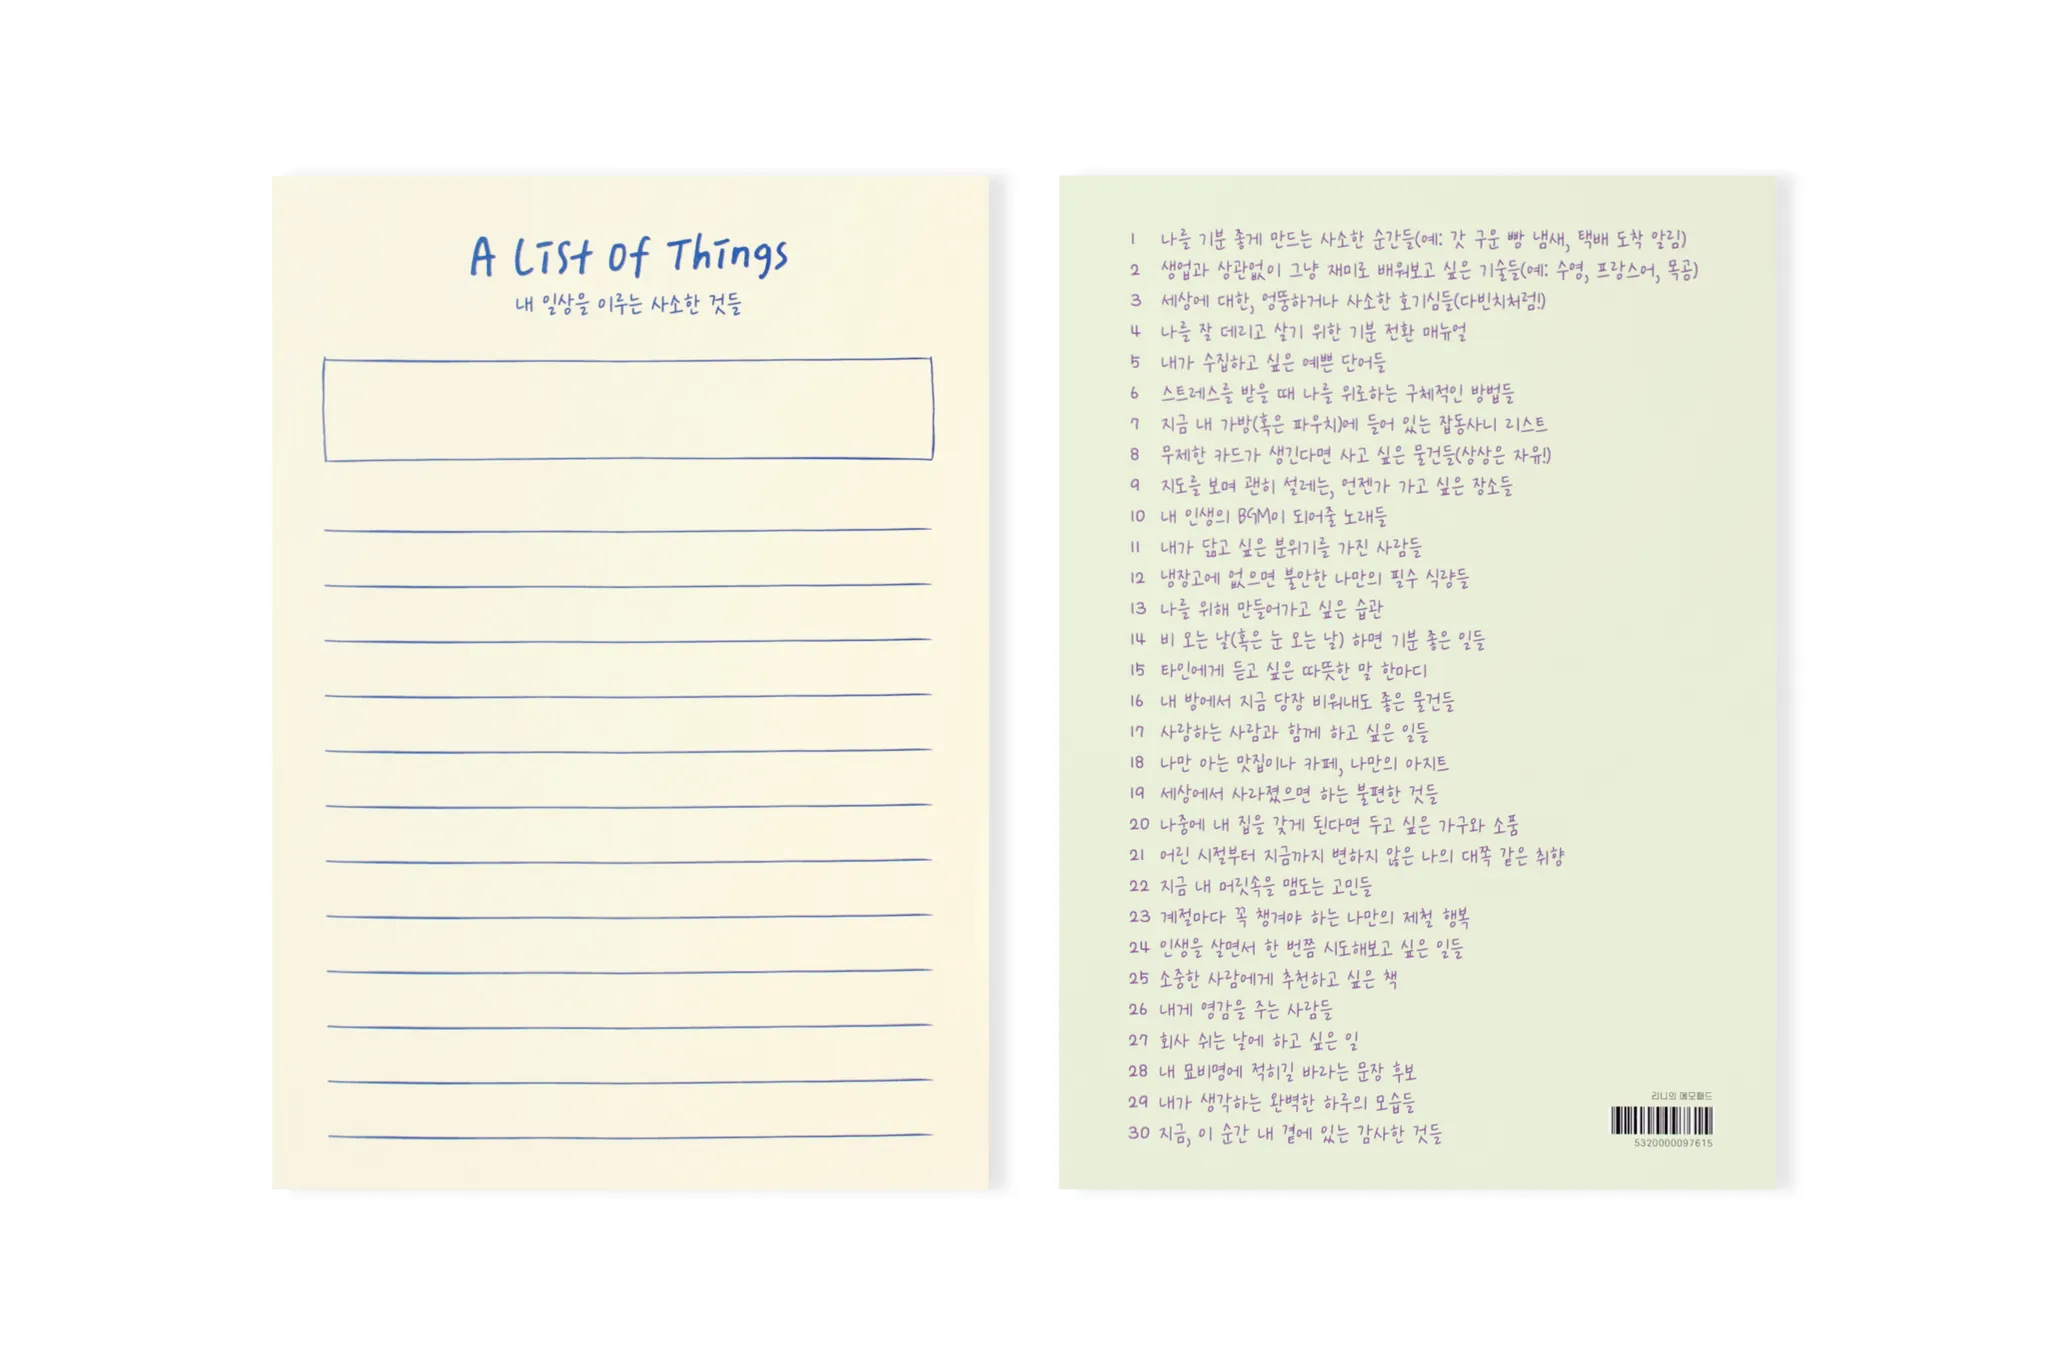 A List of Things
내 일상을 이루는 사소한 것들
1 나를 기분 좋게 만드는 사소한 순간들(예: 갓 구운 빵 냄새, 택배 도착 알림)
2 생업과 상관없이 그냥 재미로 배워보고 싶은 기술들(예: 수영, 프랑스어, 목공)
3 세상에 대한, 엉뚱하거나 사소한 호기심들(다빈치처럼!)
4 나를 잘 데리고 살기 위한 기분 전환 매뉴얼
5 내가 수집하고 싶은 예쁜 단어들
6 스트레스를 받을 때 나를 위로하는 구체적인 방법들
7 지금 내 가방(혹은 파우치)에 들어 있는 잡동사니 리스트
8 무제한 카드가 생긴다면 사고 싶은 물건들(상상은 자유!)
9 지도를 보며 괜히 설레는, 언젠가 가고 싶은 장소들
10 내 인생의 BGM이 되어줄 노래들
11 내가 닮고 싶은 분위기를 가진 사람들
12 냉장고에 없으면 불안한 나만의 필수 식량들
13 나를 위해 만들어가고 싶은 습관
14 비 오는 날(혹은 눈 오는 날) 하면 기분 좋은 일들
15 타인에게 듣고 싶은 따뜻한 말 한마디
16 내 방에서 지금 당장 비워내도 좋은 물건들
17 사랑하는 사람과 함께 하고 싶은 일들
18 나만 아는 맛집이나 카페, 나만의 아지트
19 세상에서 사라졌으면 하는 불편한 것들
20 나중에 내 집을 갖게 된다면 두고 싶은 가구와 소품
21 어린 시절부터 지금까지 변하지 않은 나의 대쪽 같은 취향
22 지금 내 머릿속을 맴도는 고민들
23 계절마다 꼭 챙겨야 하는 나만의 제철 행복
24 인생을 살면서 한 번쯤 시도해보고 싶은 일들
25 소중한 사람에게 추천하고 싶은 책
26 내게 영감을 주는 사람들
27 회사 쉬는 날에 하고 싶은 일
28 내 묘비명에 적히길 바라는 문장 후보
29 내가 생각하는 완벽한 하루의 모습들
30 지금, 이 순간 내 곁에 있는 감사한 것들
리니의 메모패드
5320000097615